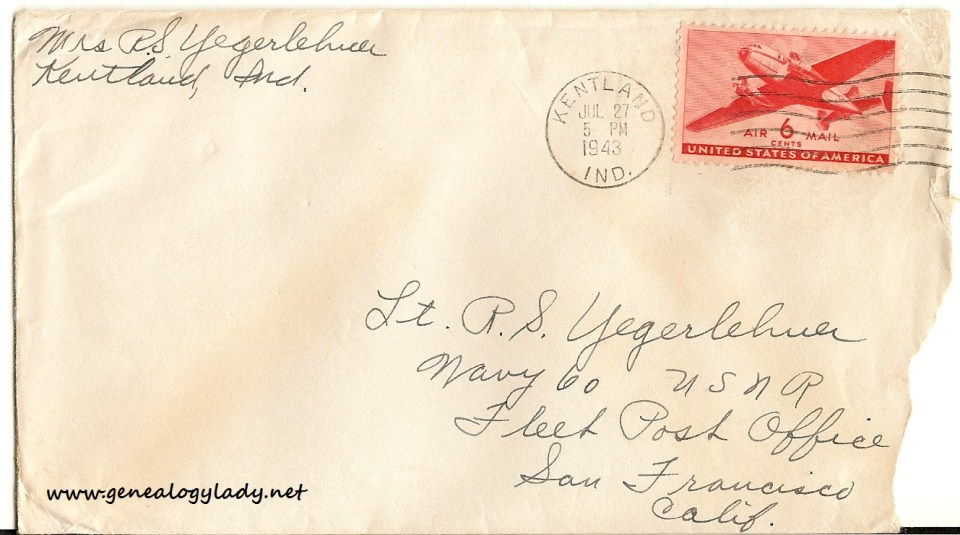 Mrs R.S Yegerlehner
Kentland, Ind.
KENTLAND
JUL 27
5 PM
1943
IND.
AIR 6 MAIL
CENTS
UNITED STATES OF AMERICA
Lt. R. S. Yegerlehner
Navy 60 U S N R
Fleet Post Office
San Francisco
Calif.
www.genealogylady.net